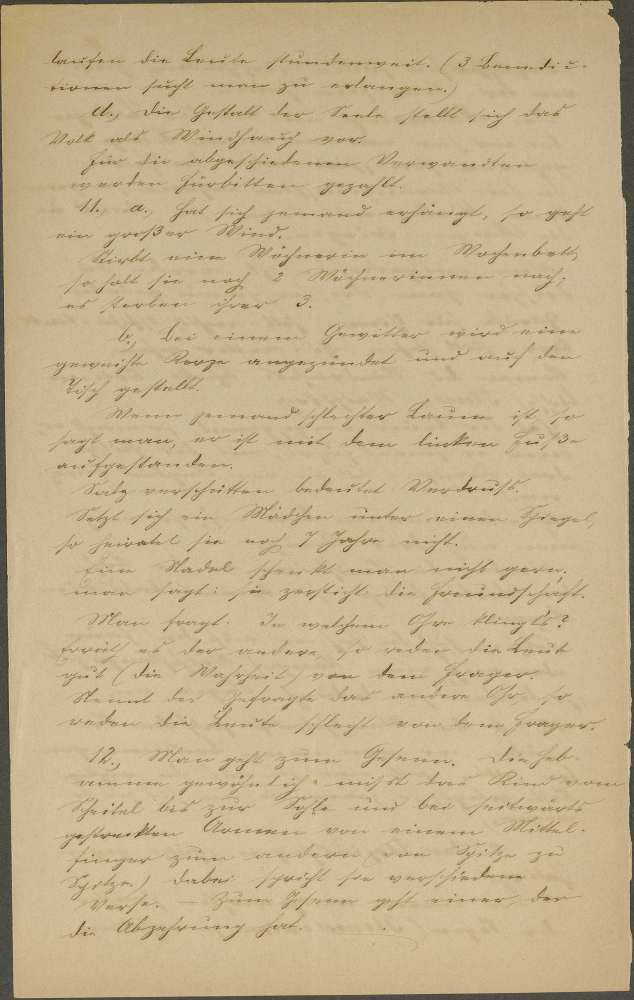 laufen die Leute stundenweit. (3 Benedic-
tionen sucht man zu erlangen.)
d., Die Gestalt der Seele stellt sich das
Volk als Windhauch vor.
Für die abgeschiedenen Verwandten
werden Fürbitten gezahlt.
11., a., Hat sich jemand erhängt, so geht
ein großer Wind.
Stirbt eine Wöchnerin im Wochenbett,
so holt sie noch 2 Wöchnerinnen nach,
es sterben ihrer 3.
b., Bei einem Gewitter wird eine
geweihte Kerze angezündet und auf den
Tisch gestellt.
Wenn jemand schlechter Laune ist, so
sagt man, er ist mit dem linken Fuße
aufgestanden.
Salz verschütten bedeutet Verdruß.
Setzt sich ein Mädchen unter einen Spiegel,
so heiratet sie noch 7 Jahre nicht.
Eine Nadel schenkt man nicht gern,
man sagt: sie zersticht die Freundschaft.
Man fragt: In welchem Ohre klingt's?
Erräth es der andere, so reden die Leute
gut (die Wahrheit) von dem Frager.
Nennt der Gefragte das andere Ohr, so
reden die Leute schlecht von dem Frager.
12., Man geht zum Gesenn. Die Heb-
amme gewöhnlich mißt das Kind vom
Scheitel bis zur Sohle und bei seitwärts
gestreckten Armen von einem Mittel-
finger zum andern (von Spitze zu
Spitze.) Dabei spricht sie verschiedene
Verse. – Zum Gsenn geht einer, der
die Abzehrung hat.